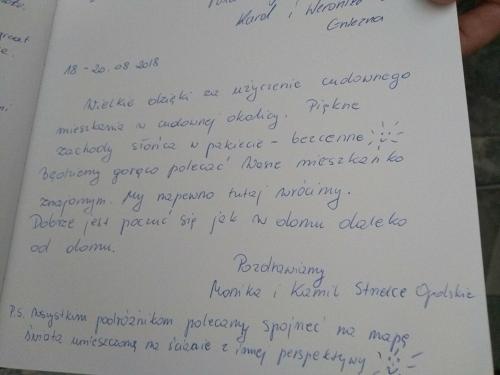 Karol i Weronika
Gniezna
18 - 20.08.2018
Wielkie dzięki za użyczenie cudownego
mieszkania w cudownej okolicy. Piękne
zachody słońca w pakiecie - bezcenne
Będziemy gorąco polecać Wasze mieszkanko
znajomym. My napewno tutaj wrócimy.
Dobrze jest poczuć się jak w domu daleko
od domu.
Pozdrawiamy
Monika i Kamil Strzelce Opolskie
P.S. Wszystkim podróżnikom polecamy spojrzeć na mapę
świata umieszczoną na ścianie z innej perspektywy